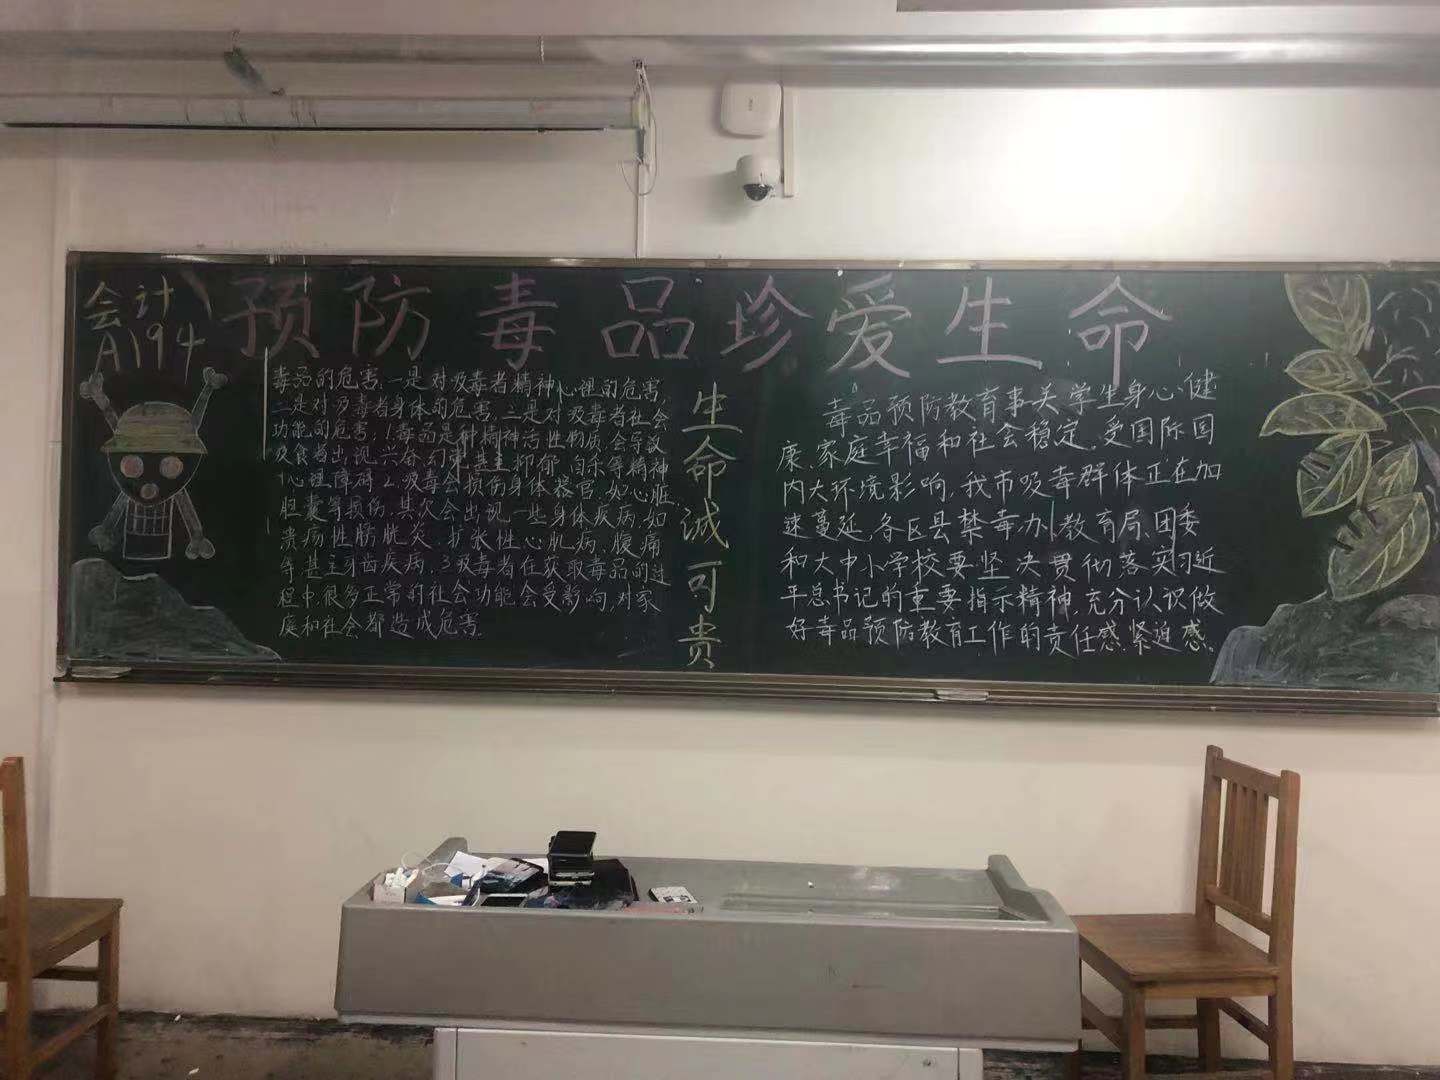 会计
A194
预防毒品珍爱生命
毒品的危害:一是对吸毒者精神心理的危害,
二是对吸毒者身体的危害,三是对吸毒者社会
功能的危害:1.毒品是种精神活性物质,会导致
吸食者出现兴奋、幻觉甚至抑郁、自杀等精神
心理障碍2.吸毒会损伤身体器官,如心脏、
胆囊等损伤,其次会出现一些身体疾病,如
溃疡性膀胱炎、扩张性心肌病、腹痛
等甚至牙齿疾病.3.吸毒者在获取毒品的过
程中,很多正常的社会功能会受影响,对家
庭和社会都造成危害.
生命诚可贵
毒品预防教育事关学生身心健
康、家庭幸福和社会稳定.受国际国
内大环境影响,我市吸毒群体正在加
速蔓延,各区县禁毒办、教育局、团委
和大中小学校要坚决贯彻落实习近
平总书记的重要指示精神,充分认识做
好毒品预防教育工作的责任感、紧迫感。